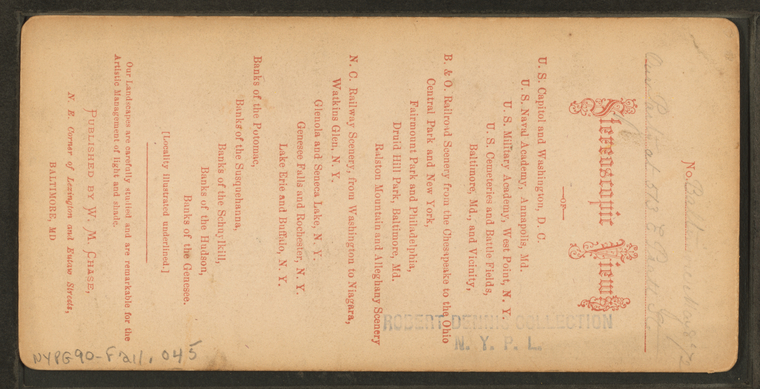 No.
Stereoscopic Views
—OF—
U. S. Capitol and Washington, D. C.
U. S. Naval Academy, Annapolis, Md.
U. S. Military Academy, West Point, N. Y.
U. S. Cemeteries and Battle Fields,
Baltimore, Md., and Vicinity,
B. & O. Railroad Scenery from the Chesapeake to the Ohio
Central Park and New York,
Fairmount Park and Philadelphia,
Druid Hill Park, Baltimore, Md.
Ralston Mountain and Alleghany Scenery
N. C. Railway Scenery, from Washington to Niagara,
Watkins Glen, N. Y.
Glenola and Seneca Lake, N. Y.
Genesee Falls and Rochester, N. Y.
Lake Erie and Buffalo, N. Y.
Banks of the Potomac,
Banks of the Susquehanna,
Banks of the Schuylkill,
Banks of the Hudson,
Banks of the Genesee.
[Locality illustrated underlined.]
Our Landscapes are carefully studied and are remarkable for the
Artistic Management of light and shade.
PUBLISHED BY W. M. CHASE,
N. E. Corner of Lexington and Eutaw Streets,
BALTIMORE, MD
ROBERT DENNIS COLLECTION
N. Y. P. L.
NYPG90-F211.045